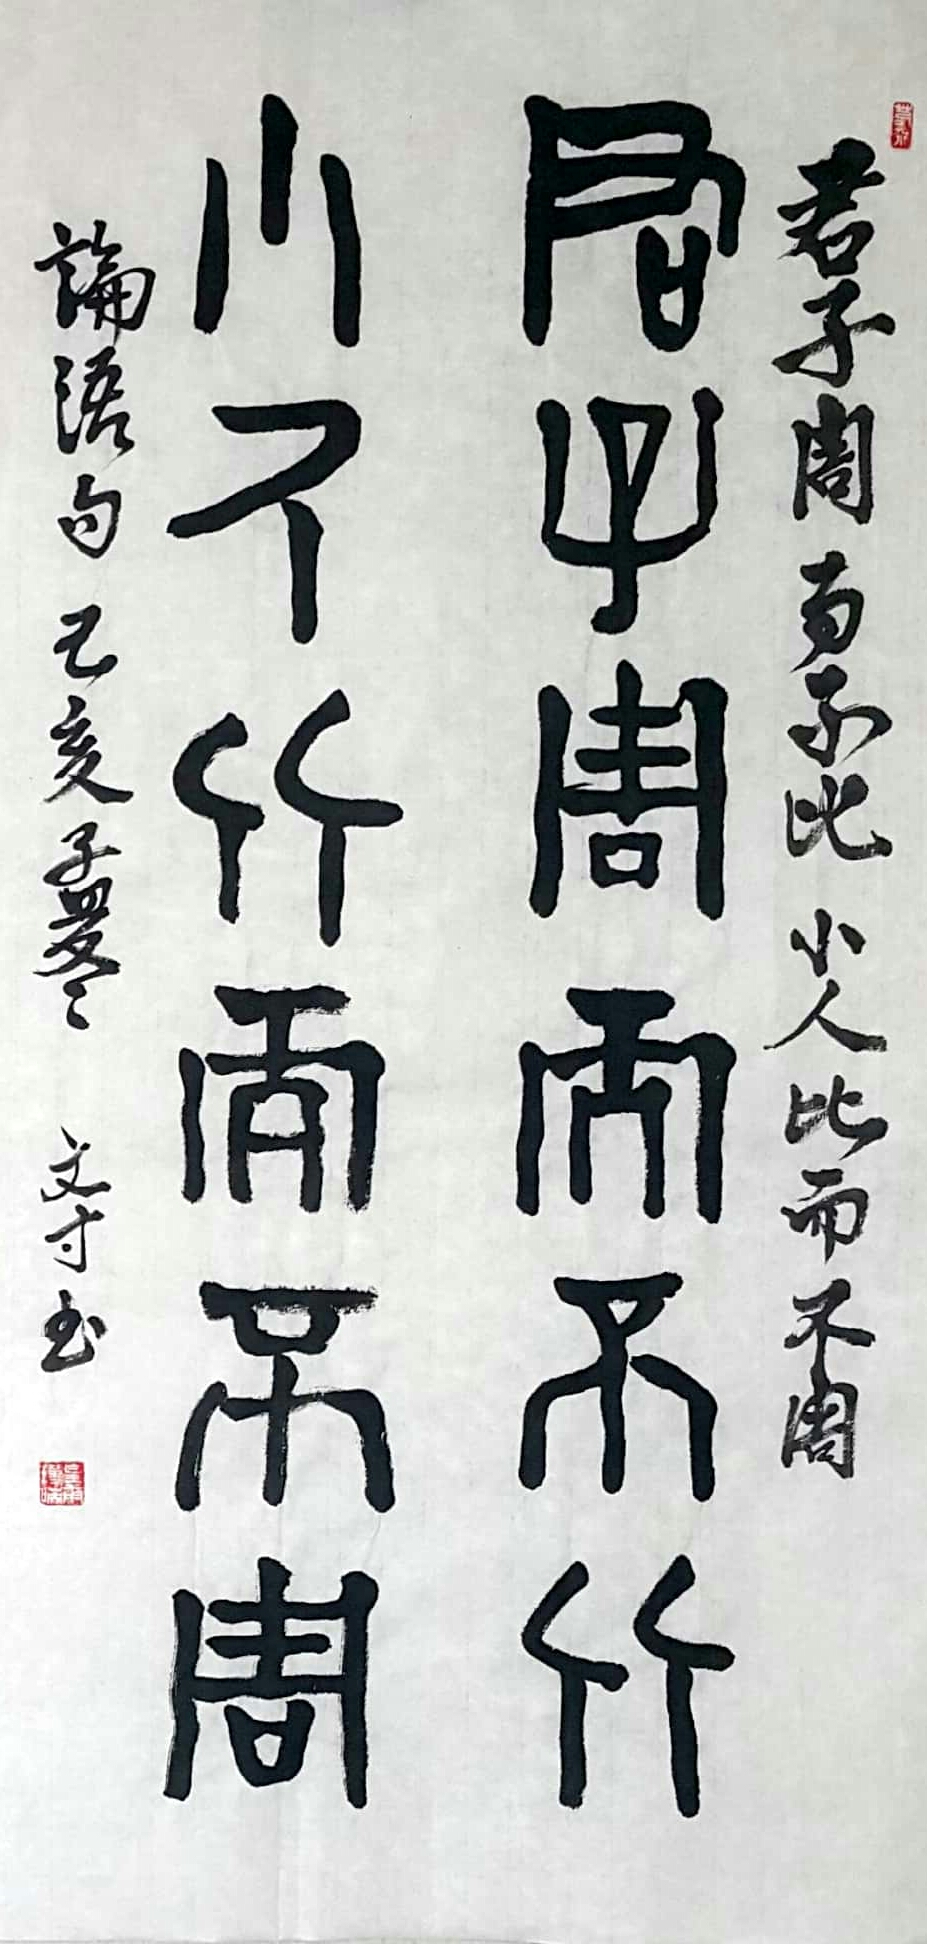 君子周而不比小人比而不周
君子周而不比
小人比而不周
論語句己亥孟冬文寸书